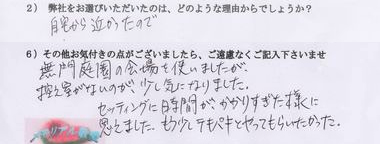 2） 弊社をお選びいただいたのは、どのような理由からでしょうか？
自宅から近かったので
6） その他お気付きの点がございましたら、ご遠慮なくご記入下さいませ
無門庭園の会場を使いましたが、
控え室がないのが少し気になりました。
セッティングに時間がかかりすぎた様に
思えました。もう少しテキパキとやってもらいたかった。